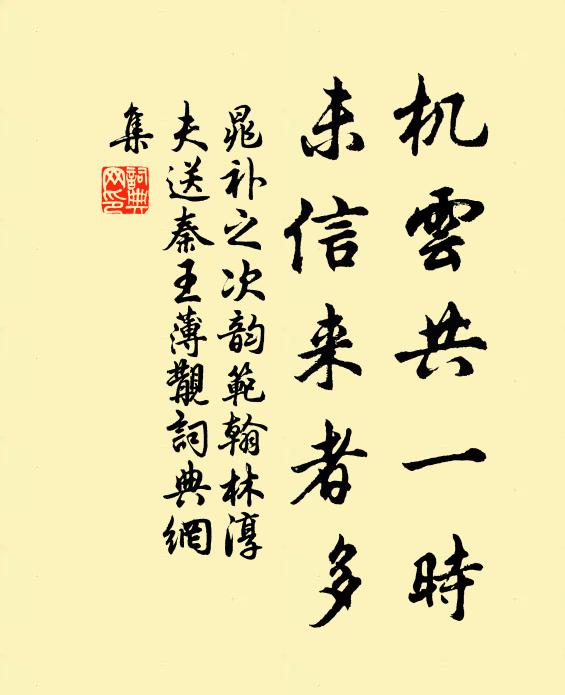 机雲共一時
未信来者多
晁补之次韵範翰林淳
夫送秦王薄觏詞典網
集
詞典网印